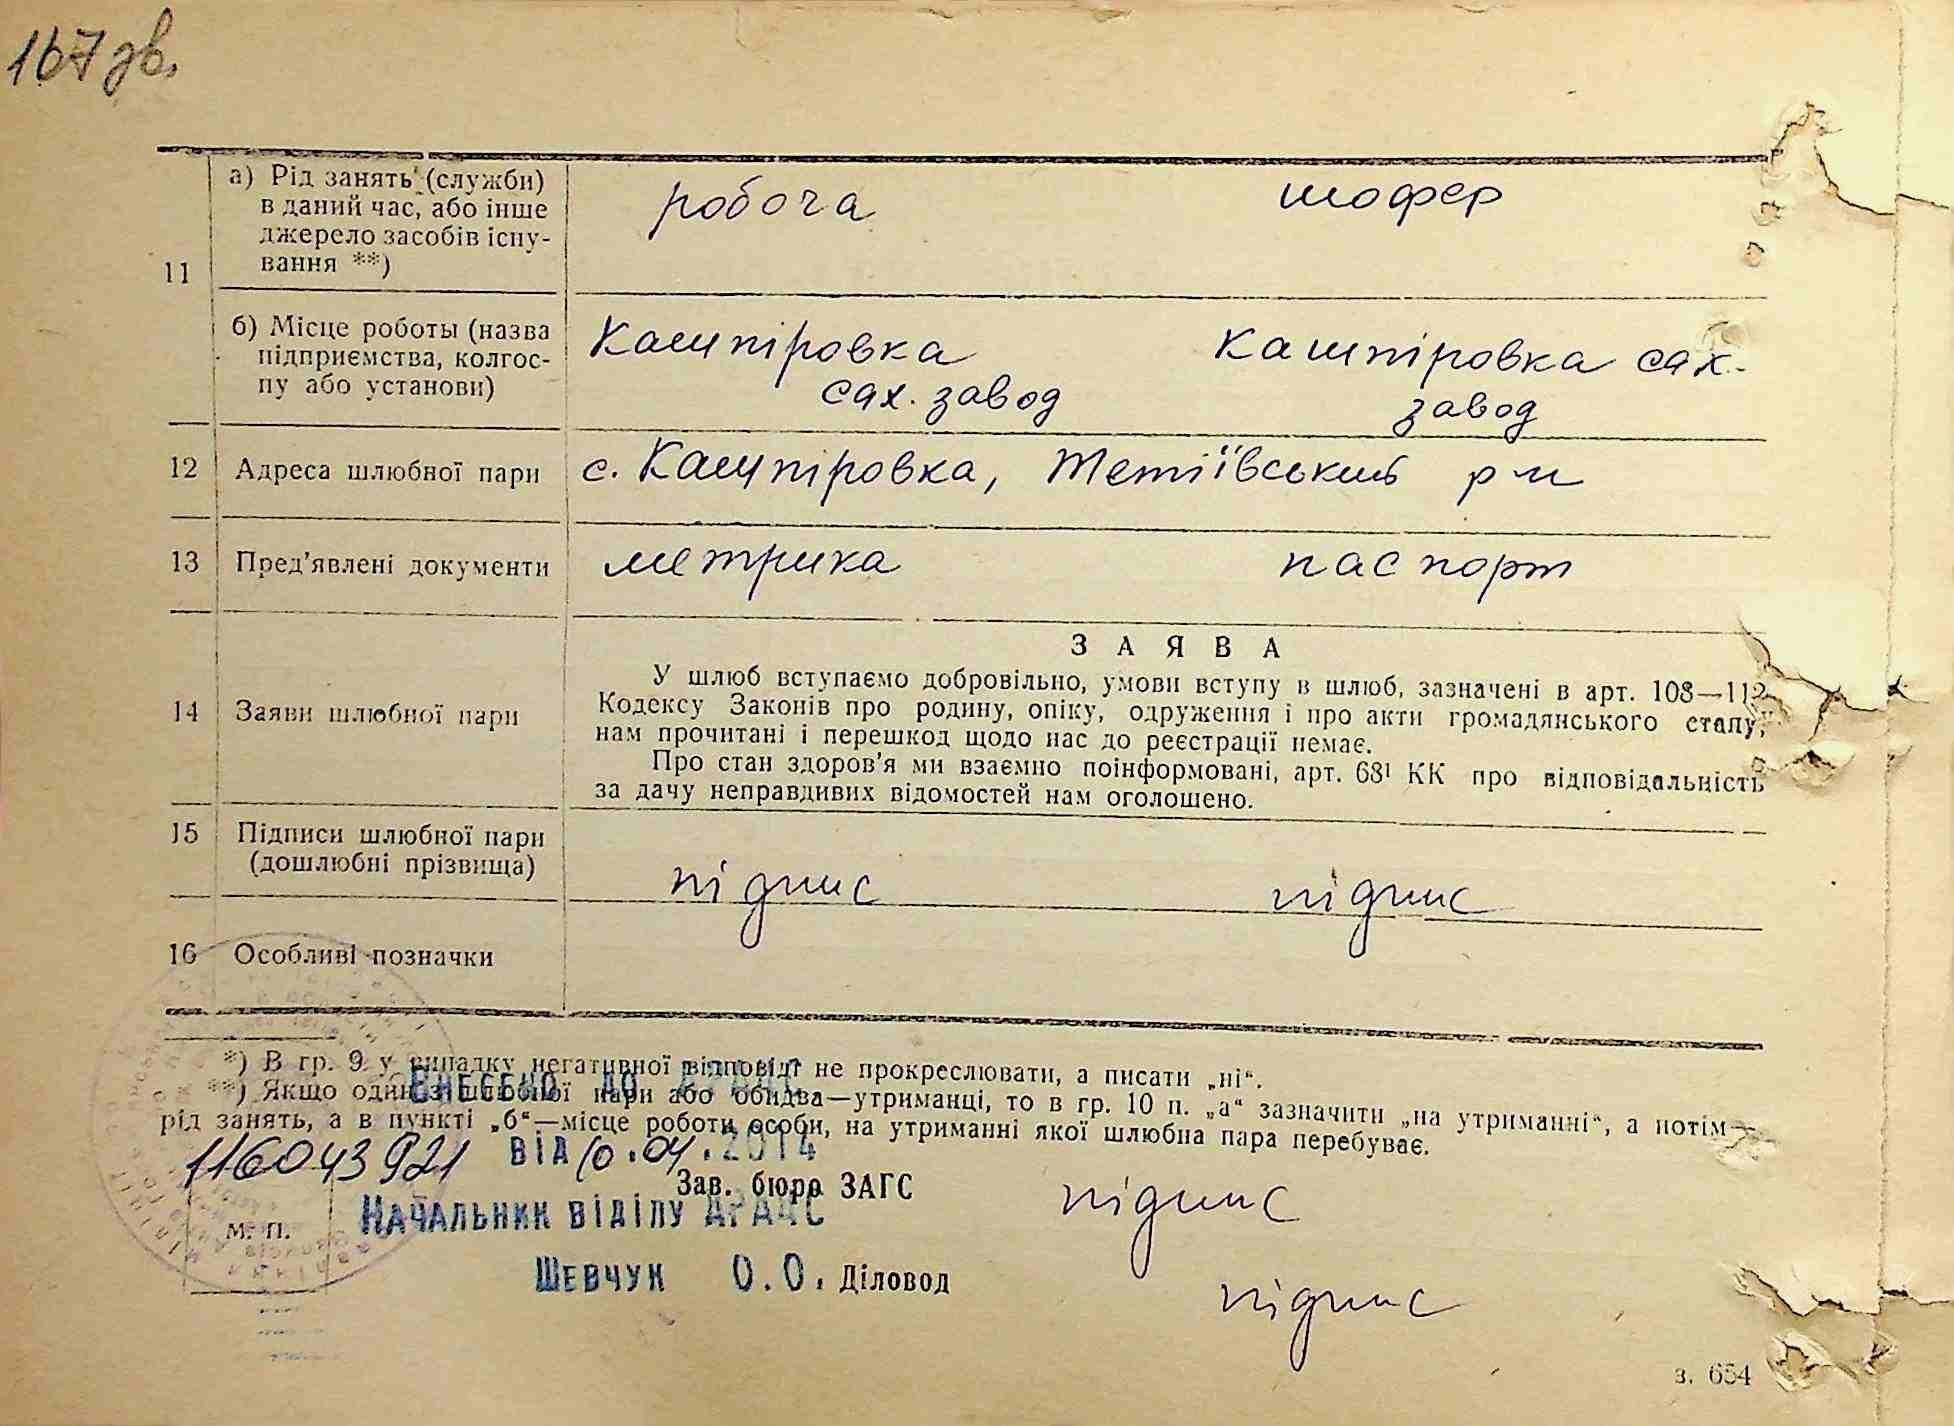 167 зв.
а) Рід занять (служби) робоча шофер
в даний час, або інше
джерело засобів існу-
вання **)
11
б) Місце роботы (назва Кашпіровка Кашпіровка сах.
підприємства, колгос-
пу або установи) сах. завод завод
12 Адреса шлюбної пари с. Кашпіровка, Тетіївський р-н
13 Пред'явлені документи метрика паспорт
ЗАЯВА
У шлюб вступаємо добровільно, умови вступу в шлюб, зазначені в арт. 108—112
14 Заяви шлюбної пари Кодексу Законів про родину, опіку, одруження і про акти громадянського стану,
нам прочитані і перешкод щодо нас до реєстрації немає.
Про стан здоров'я ми взаємно поінформовані, арт. 68¹ КК про відповідальність
за дачу неправдивих відомостей нам оголошено.
15 Підписи шлюбної пари
(дошлюбні прізвища) підпис підпис
16 Особливі позначки
*) В гр. 9 у випадку негативної відповіді не прокреслювати, а писати „ні“.
Внесено до ДРАЦС
**) Якщо один з шлюбної пари або обидва—утриманці, то в гр. 10 п. „а“ зазначити „на утриманні“, а потім—
рід занять, а в пункті „б“—місце роботи особи, на утриманні якої шлюбна пара перебуває.
116043921 від 10.04.2014
Зав. бюро ЗАГС підпис
Начальник відділу ДРАЦС
М. П.
Шевчук О.О. Діловод підпис
з. 654